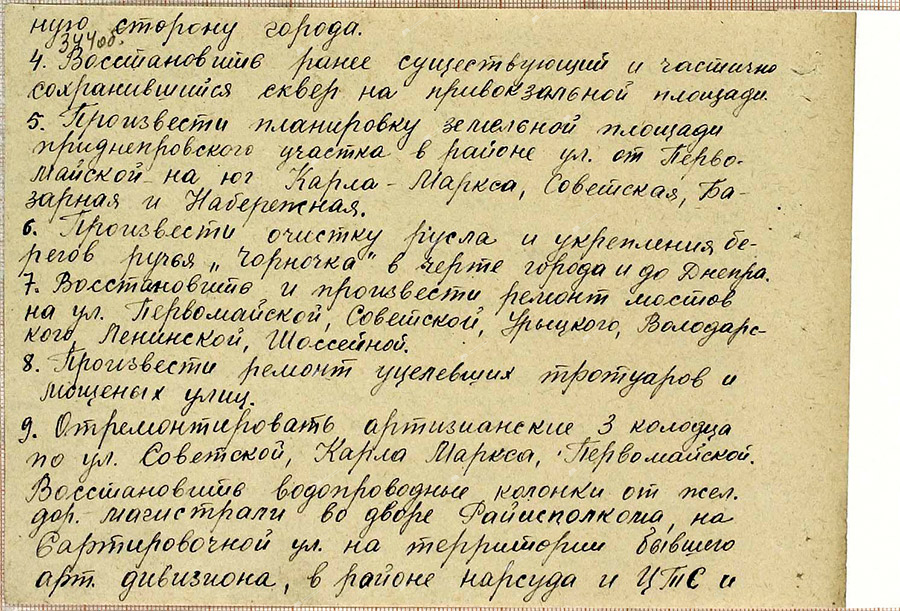 ную сторону города.
344об.
4. Восстановить ранее существующий и частично
сохранившийся сквер на привокзальной площади.
5. Произвести планировку земельной площади
приднепровского участка в районе ул. от Перво-
майской на юг Карла-Маркса, Советская, Ба-
зарная и Набережная.
6. Произвести очистку русла и укрепления бе-
регов ручья „Чорночка" в черте города и до Днепра.
7. Восстановить и произвести ремонт мостов
на ул. Первомайской, Советской, Урыцкого, Володарс-
кого, Ленинской, Шоссейной.
8. Произвести ремонт уцелевших тротуаров и
мощеных улиц.
9. Отремонтировать артизианские 3 колодца
по ул. Советской, Карла Маркса, Первомайской.
Восстановить водопроводные колонки от жел.
дор. магистрали во дворе Райисполкома, на
Сартировочной ул. на территории бывшего
арт. дивизиона, в районе нарсуда и ЦТС и